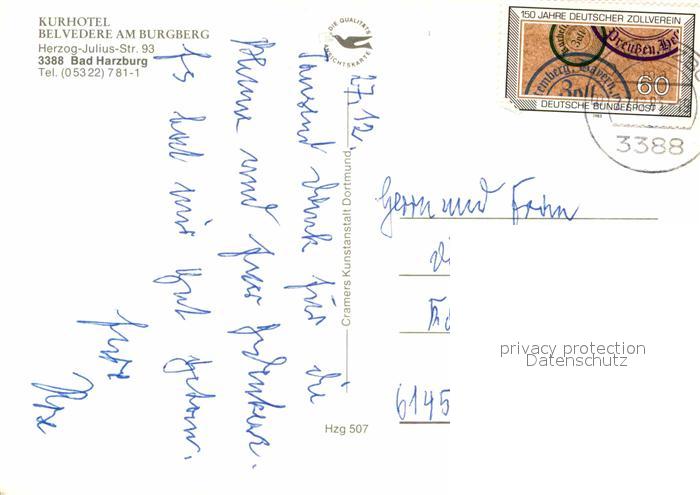 KURHOTEL
BELVEDERE AM BURGBERG
Herzog-Julius-Str. 93
3388 Bad Harzburg
Tel. (05322) 781-1
DIE QUALITÄTS
ANSICHTSKARTE
150 JAHRE DEUTSCHER ZOLLVEREIN
Preußen, He
Bayern,
Zoll
60
DEUTSCHE BUNDESPOST
3388
27.12.
Tausend Dank für die
Blumen und Ihr Gedenken.
Es hat mir gut getan.
Ihre
Cramers Kunstanstalt Dortmund
Herrn und Frau
6145
privacy protection
Datenschutz
Hzg 507